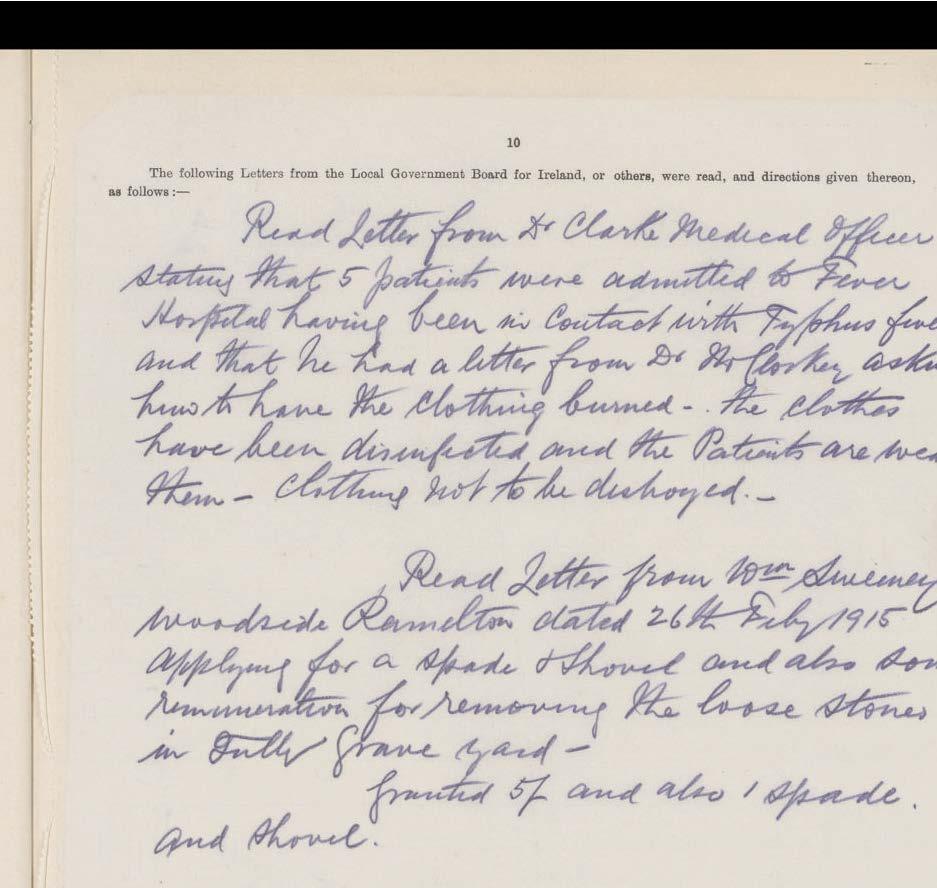 10
The following Letters from the Local Government Board for Ireland, or others, were read, and directions given thereon,
as follows :—
Read Letter from Dr Clarke Medical Officer
stating that 5 patients were admitted to Fever
Hospital having been in Contact with Typhus feve
and that he had a letter from Dr McCloskey aski
him to have the Clothing burned - . the clothes
have been disinfected and the Patients are wea
them - Clothing not to be destroyed. -
Read Letter from Wm Sweeney
Woodside Ramelton dated 26th Feby 1915
Applying for a spade & Shovel and also som
remuneration for removing the loose stones
in Tully Grave yard -
Granted 5/- and also 1 spade.
and shovel.